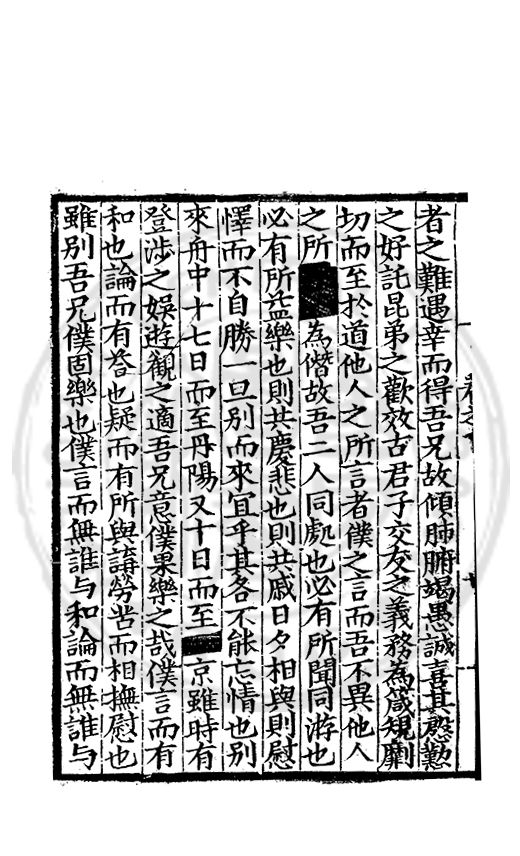 者之難遇幸而得吾兄故傾肺腑竭愚誠喜其慇懃
之好託昆弟之歡效古君子交友之義務為箴規劘
切而至於道他人之所言者僕之言而吾不異他人
之所為僭故吾二人同處也必有所聞同游也
必有所益樂也則共慶悲也則共戚日夕相與則慰
懌而不自勝一旦別而來宜乎其各不能忘情也別
來舟中十七日而至丹陽又十日而至京雖時有
登涉之娛遊觀之適吾兄意僕果樂之哉僕言而有
和也論而有答也疑而有所與講勞苦而相撫慰也
雖別吾兄僕固樂也僕言而無誰与和論而無誰与